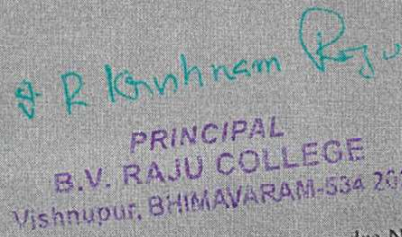 R Krishnam Raju
PRINCIPAL
B.V. RAJU COLLEGE
Vishnupur, BHIMAVARAM-534 20